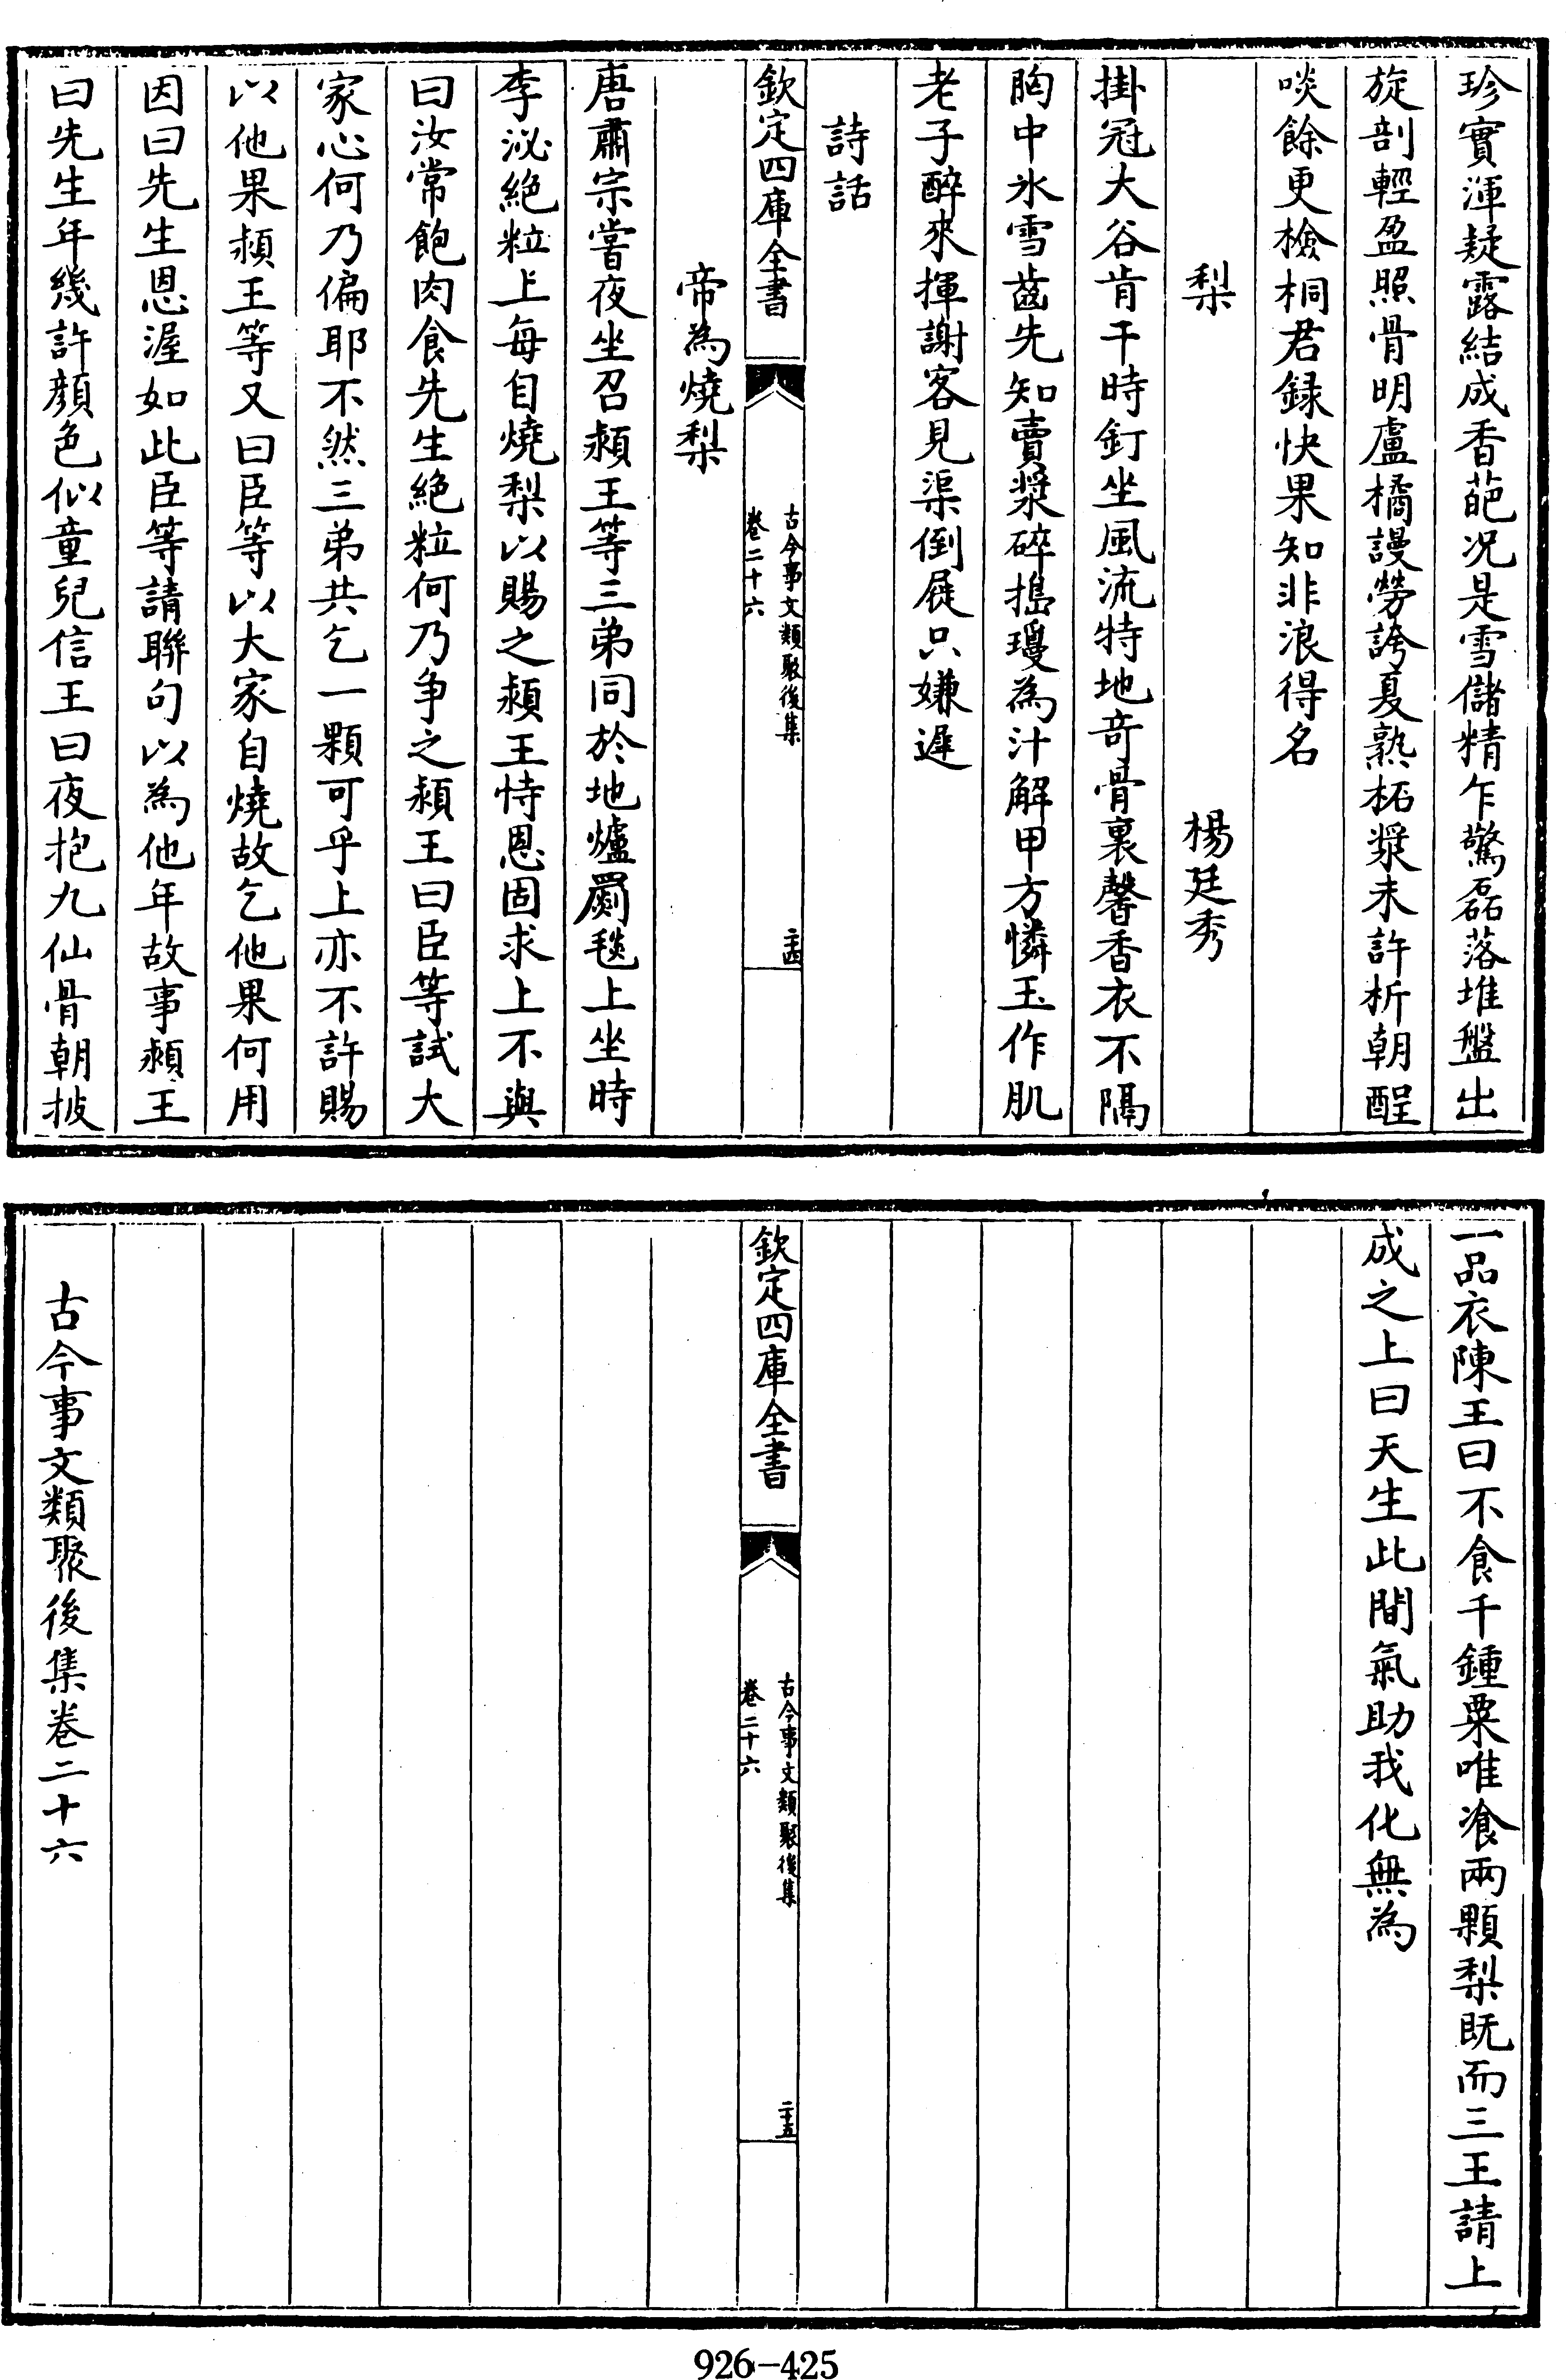 珍實渾疑露結成香葩况是雪儲精乍驚磊落堆盤出
旋剖輕盈照骨明盧橘謾勞誇夏熟柘漿未許析朝酲
啖餘更檢桐君録快果知非浪得名
梨　楊廷秀
掛冠大谷肯干時飣坐風流特地竒骨裏馨香衣不隔
胸中氷雪齒先知賣漿碎擣瓊為汁解甲方憐玉作肌
老子醉來揮謝客見渠倒屐只嫌遲
詩話
欽定四庫全書
古今事文類聚後集
卷二十六
二十四
帝為燒梨
唐肅宗嘗夜坐召潁王等三弟同於地爐罽毯上坐時
李泌絶粒上毎自燒梨以賜之潁王恃恩固求上不與
曰汝常飽肉食先生絶粒何乃争之潁王曰臣等試大
家心何乃偏耶不然三弟共乞一顆可乎上亦不許賜
以他果潁王等又曰臣等以大家自燒故乞他果何用
因曰先生恩渥如此臣等請聯句以為他年故事潁王
曰先生年幾許顔色似童兒信王曰夜抱九仙骨朝披
一品衣陳王曰不食千鍾粟唯飡兩顆梨既而三王請上
成之上曰天生此間氣助我化無為
欽定四庫全書
古今事文類聚後集
卷二十六
二十五
古今事文類聚後集卷二十六
926-425